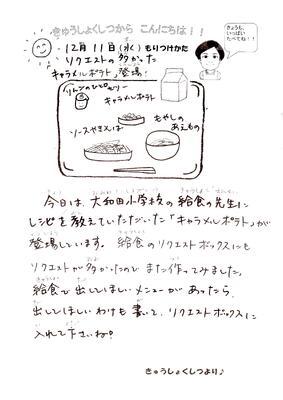 きゅうしょくしつから こんにちは!!
きょうも、
いっぱい
たべてね!!
12月11日(水) もりつけかた
リクエストの多かった
キャラメルポテト 登場!
キャラメルポテト
もやしの
あえもの
ソースやきそば
今日は、大和田小学校の給食の先生に
レシピを教えていただいた「キャラメルポテト」が
登場しています。給食のリクエストボックスにも
リクエストが多かったので また作ってみました。
給食で出してほしいメニューが あったら、
出してほしいわけも書いて、リクエストボックスに
入れて下さいね。
きゅうしょくしつより♪